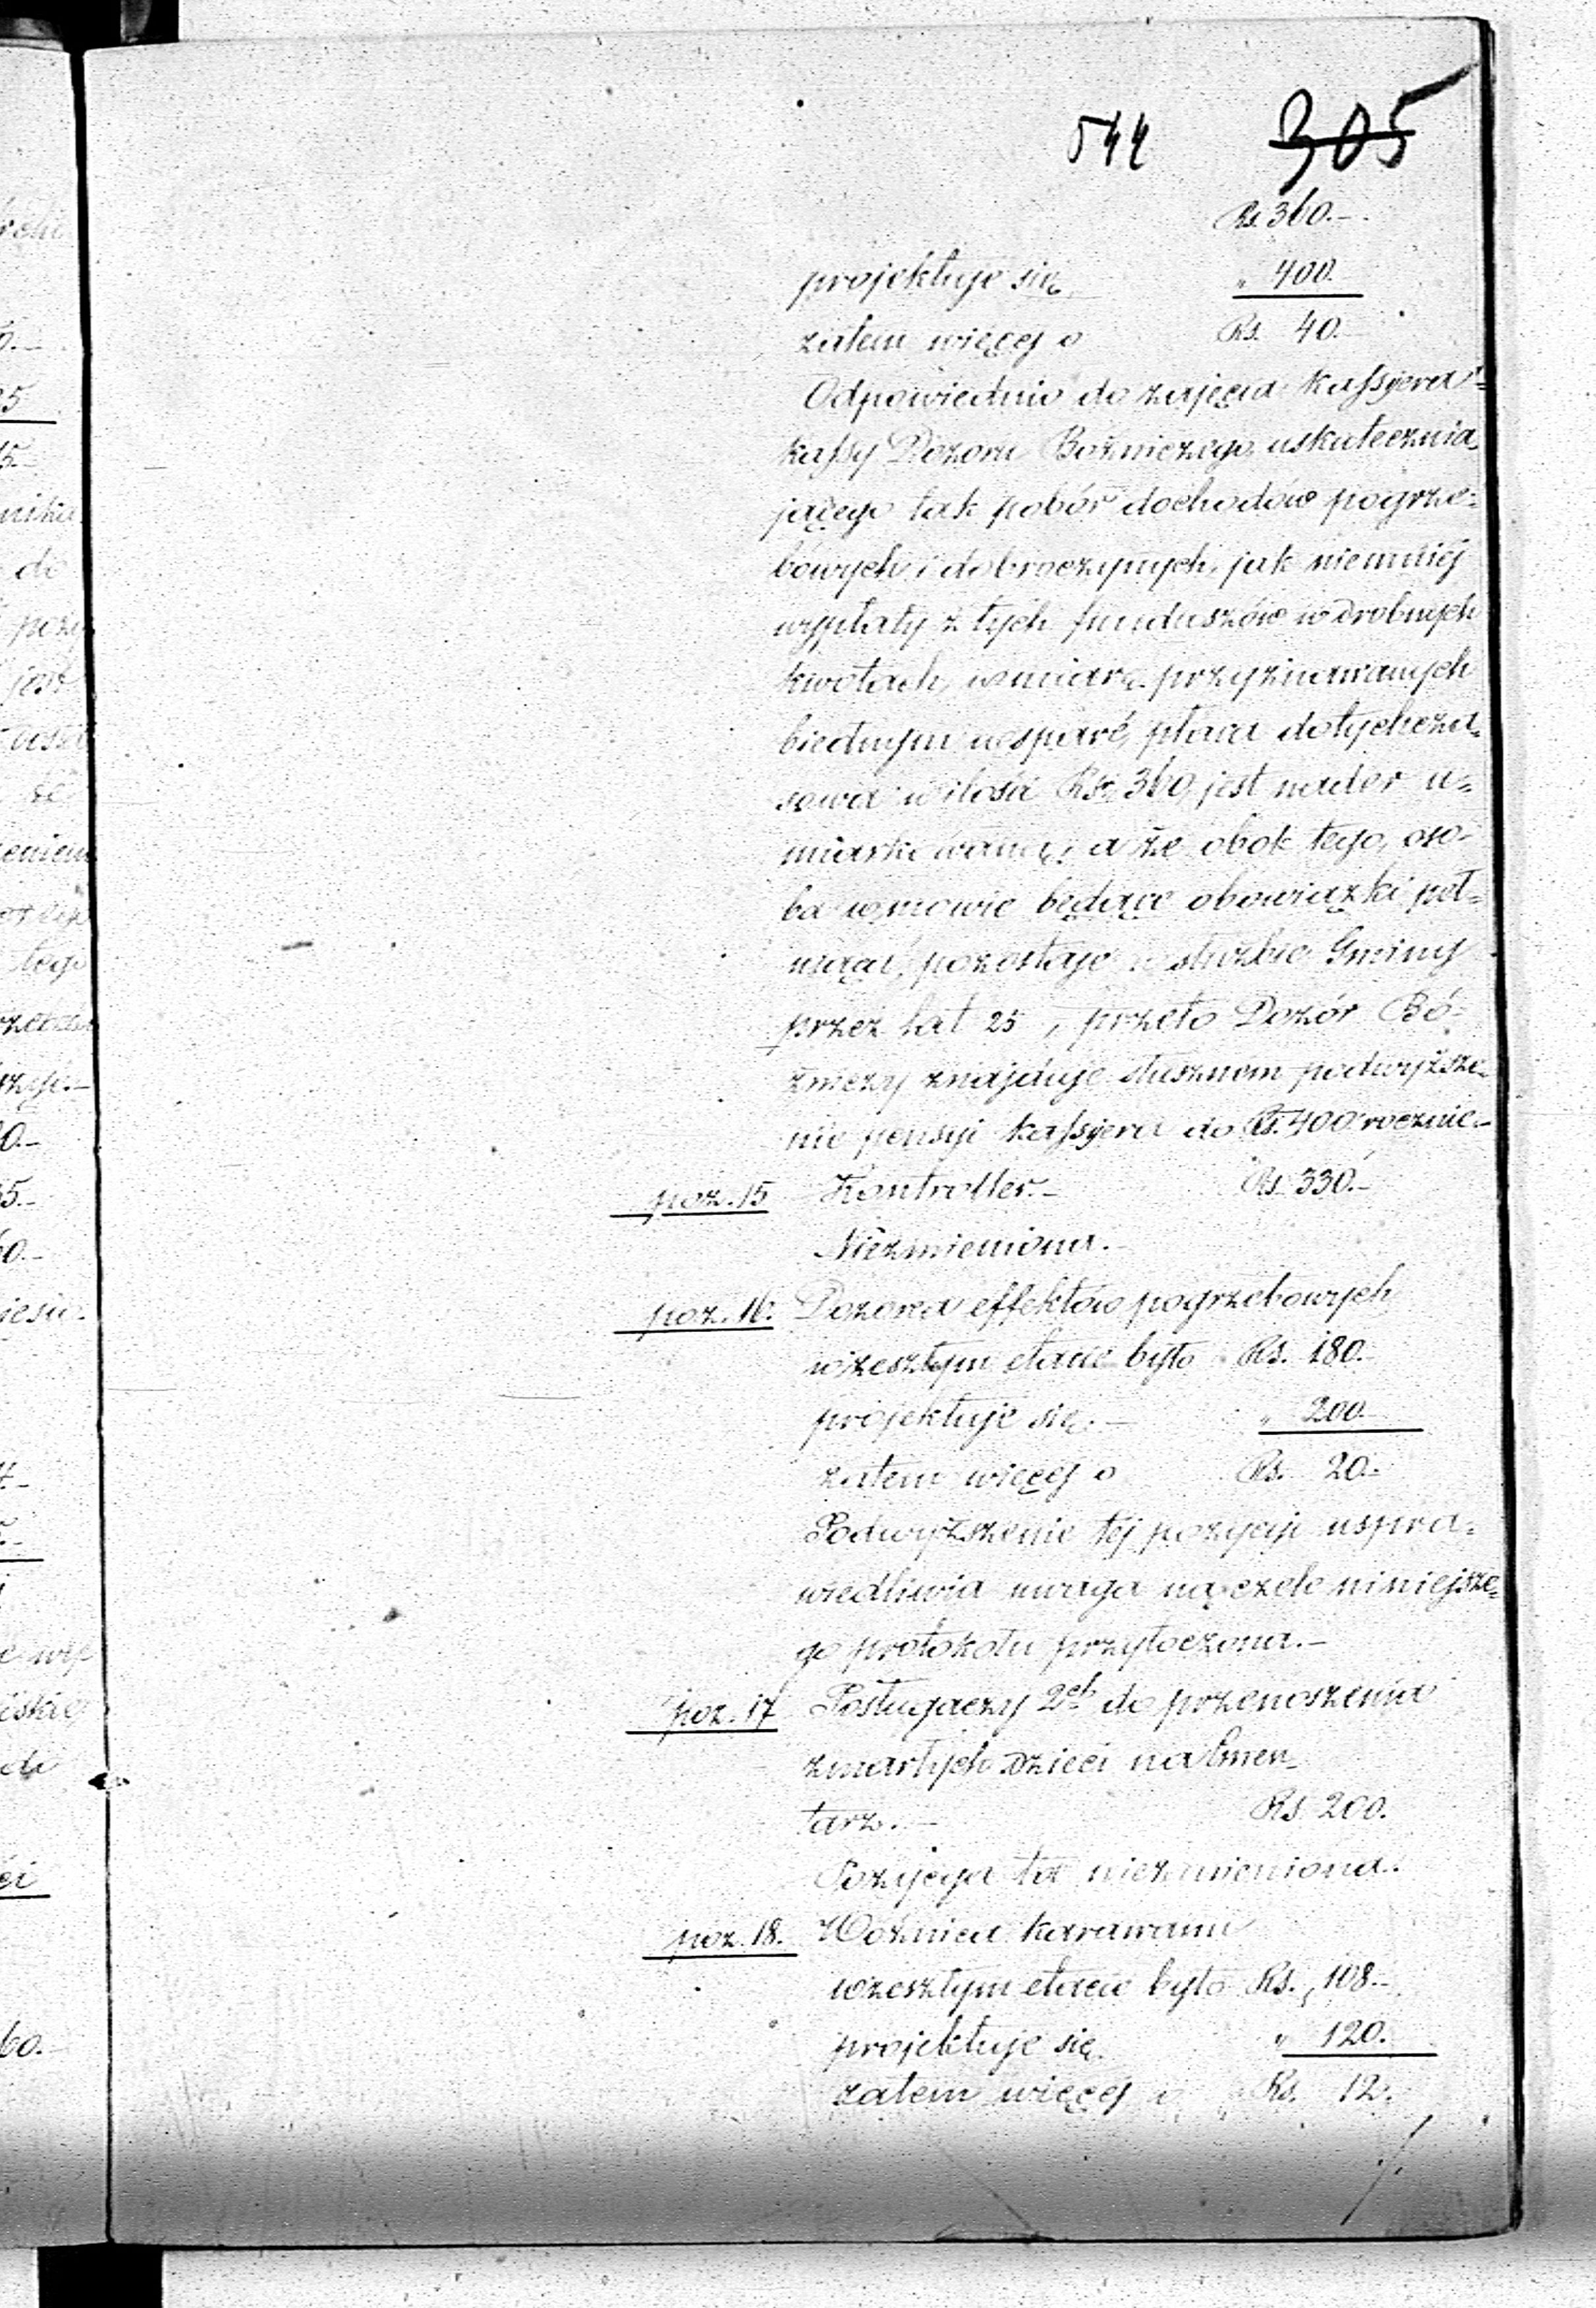 544 305
Rs. 360.-
projektuje się „ 400.
zatem więcej o Rs. 40.-
Odpowiednio do zajęcia Kassyera
kassy Dozoru Bożniczego, uskutecznia-
jącego tak pobór dochodów pogrze-
bowych i dobroczynnych, jak niemniej
wypłaty z tych funduszów w drobnych
kwotach, w miarę przyznawanych
biednym wsparć, płaca dotychcza-
sowa w ilości Rsr. 360, jest nader u-
miarkowaną; a że obok tego, oso-
ba w mowie będące obowiązki peł-
niąca, pozostaje w służbie Gminy
przez lat 25, przeto Dozór Bó-
żniczy znajduje słusznem podwyższe-
nie pensyi Kassyera do Rs. 400 rocznie.-
poz. 15 Kontroller.- Rs. 330.-
Niezmieniona.-
poz. 16. Dozorca effektów pogrzebowych
w zeszłym etacie było Rs. 180.
projektuje się.- „ 200.-
zatem więcej o Rs. 20.-
Podwyższenie téj pozycyi uspra-
wiedliwia uwaga na czele niniejsze-
go protokołu przytoczona.-
poz. 17 Posługaczy 2ch do przenoszenia
zmarłych dzieci na Cmen-
tarz.- Rs. 200.
Pozycya ta niezmieniona.
poz. 18. Woźnica karawanu
w zeszłym etacie było Rs. 108.-
projektuje się. „ 120.
zatem więcej o Rs. 12.